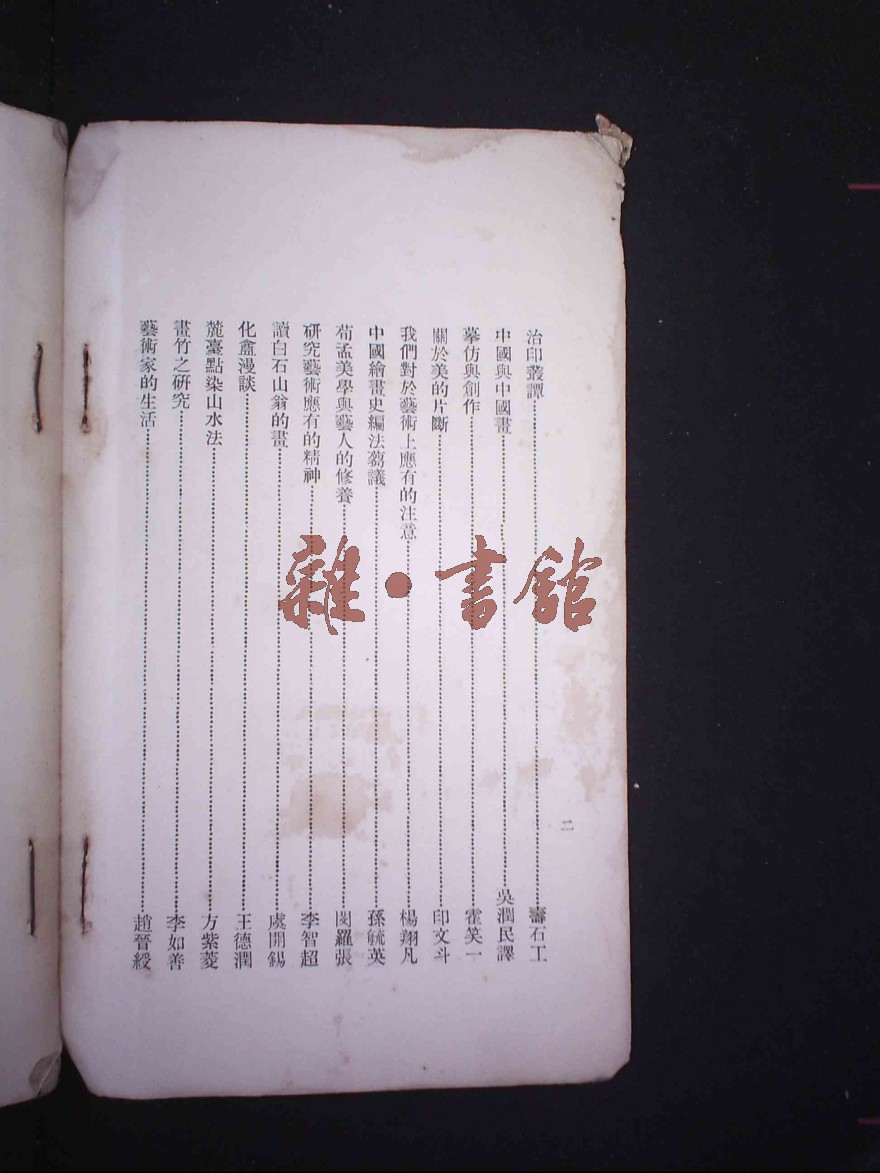 治印叢譚………壽石工
中國與中國畫………吳潤民譯
摹仿與創作………霍笑一
關於美的片斷………印文斗
我們對於藝術上應有的注意………楊翔凡
中國繪畫史編法蒭議………孫毓英
荀孟美學與藝人的修養………閔羅張
研究藝術應有的精神………李智超
讀白石山翁的畫………虞開錫
化盦漫談………王德潤
麓臺點染山水法………方紫菱
畫竹之研究………李如善
藝術家的生活………趙晉綬
二
雜·書館